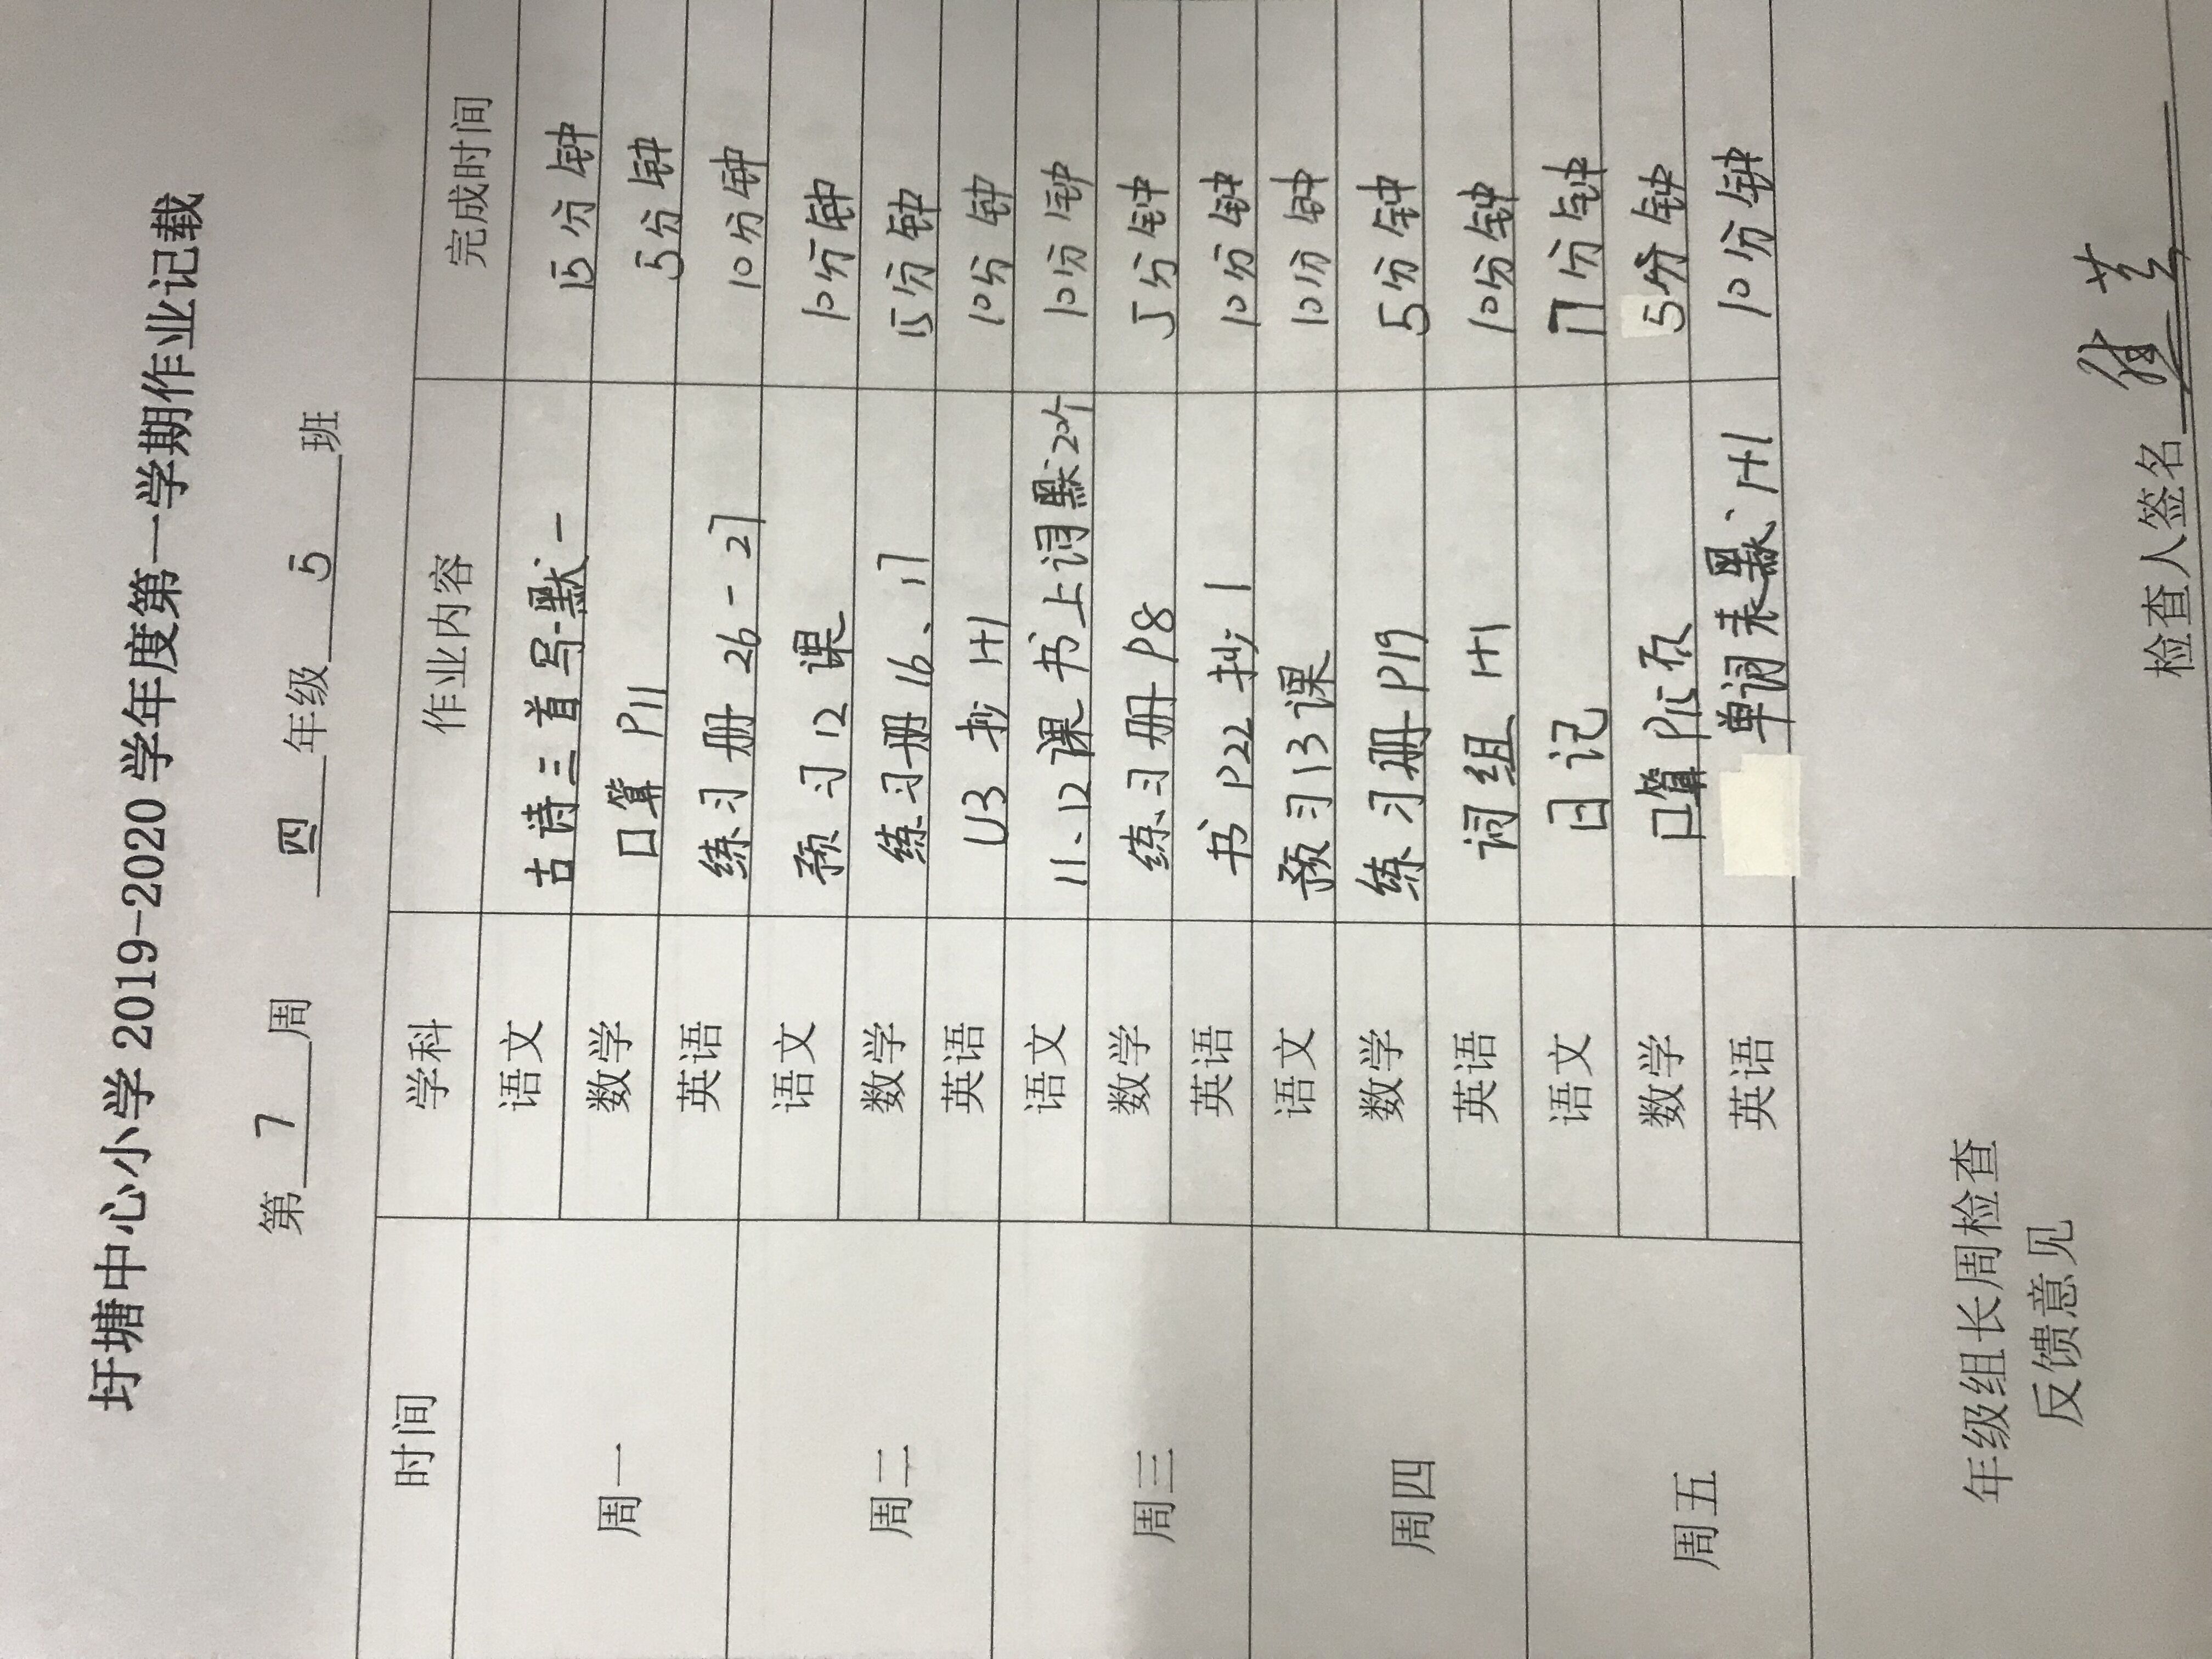 圩塘中心小学 2019-2020 学年度第一学期作业记载
第 7 周 四 年级 5 班
时间 学科 作业内容 完成时间
周一 语文 古诗三首写一默一 15分钟
数学 口算 P11 5分钟
英语 练习册 26-27 10分钟
周二 语文 预习12课 10分钟
数学 练习册16、17 15分钟
英语 U3 抄 1+1 10分钟
周三 语文 11、12课书上词默20个 10分钟
数学 练习册 P8 5分钟
英语 书 P22 抄 1 10分钟
周四 语文 预习13课 10分钟
数学 练习册 P19 5分钟
英语 词组 1+1 10分钟
周五 语文 日记 分钟
数学 口算 P15页 5分钟
英语 单词表默 1+1 10分钟
年级组长周检查
反馈意见
检查人签名